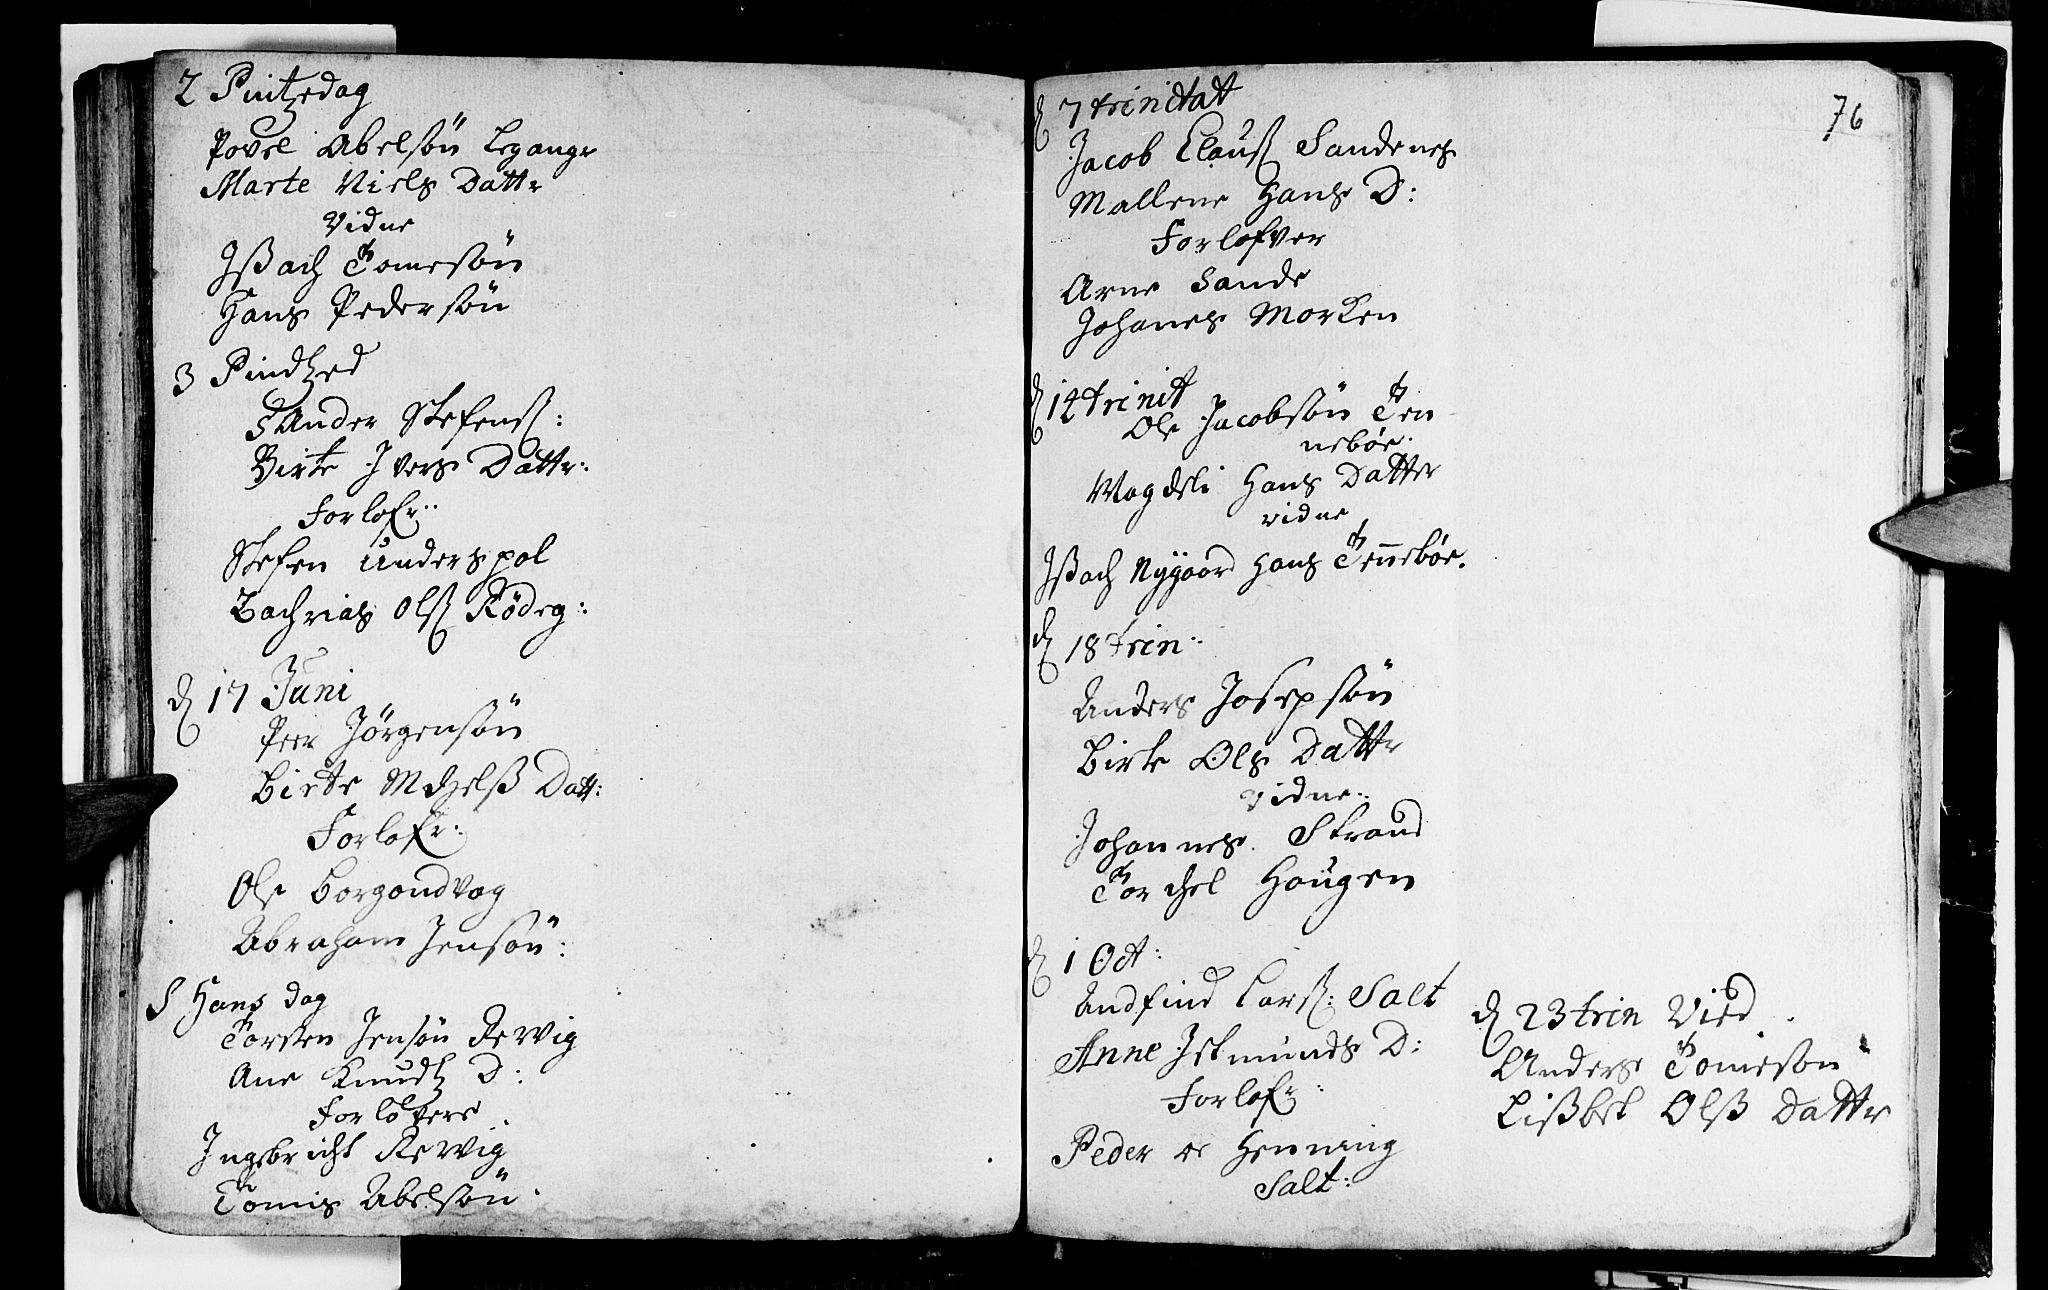 2 Pintzedag
Povel Abelsön Legangr
Marte Niels Dattr
Vidne
Jsach Tomesön
Hans Pedersön
3 Pindtzed
Sander Stefenss:
Birte Jvers Dattr:
Forlofr:
Stefen Underspol
Zachrias Olss Rödeg:
d 17 Juni
Peer Jörgensön
Birte Datt:
Forlofr:
Ole Borgondvog
Abraham Jensön:
S Hans dag
Torsten Jensön Rewig
Ane Knudtz D:
Forlovere
Jngebricht Rewig
Tomis Abelsön
76
d 7 trinitat
Jacob Clauss Sandenes
Mallene Hans D:
Forlofver
Arne Sande
Johanes Morken
d 12 trinit
Ole Jacobsön Ten
nebøe.
Magdeli Hans Datter
vidne
Jsach Nygaard Hans Tennebøe.
d 18 trin:
Anders Josepsön
Birte Ols Dattr
Vidne:
Johannes Strand
Torchel Haugen
d 1 Oct:
Andfind Larss: Salt
Anne Jstmunds D:
Forlofr:
Peder oc Henning
Salt:
d 23 trin Vied
Anders Tomeson
Lissbet Olss Dattr